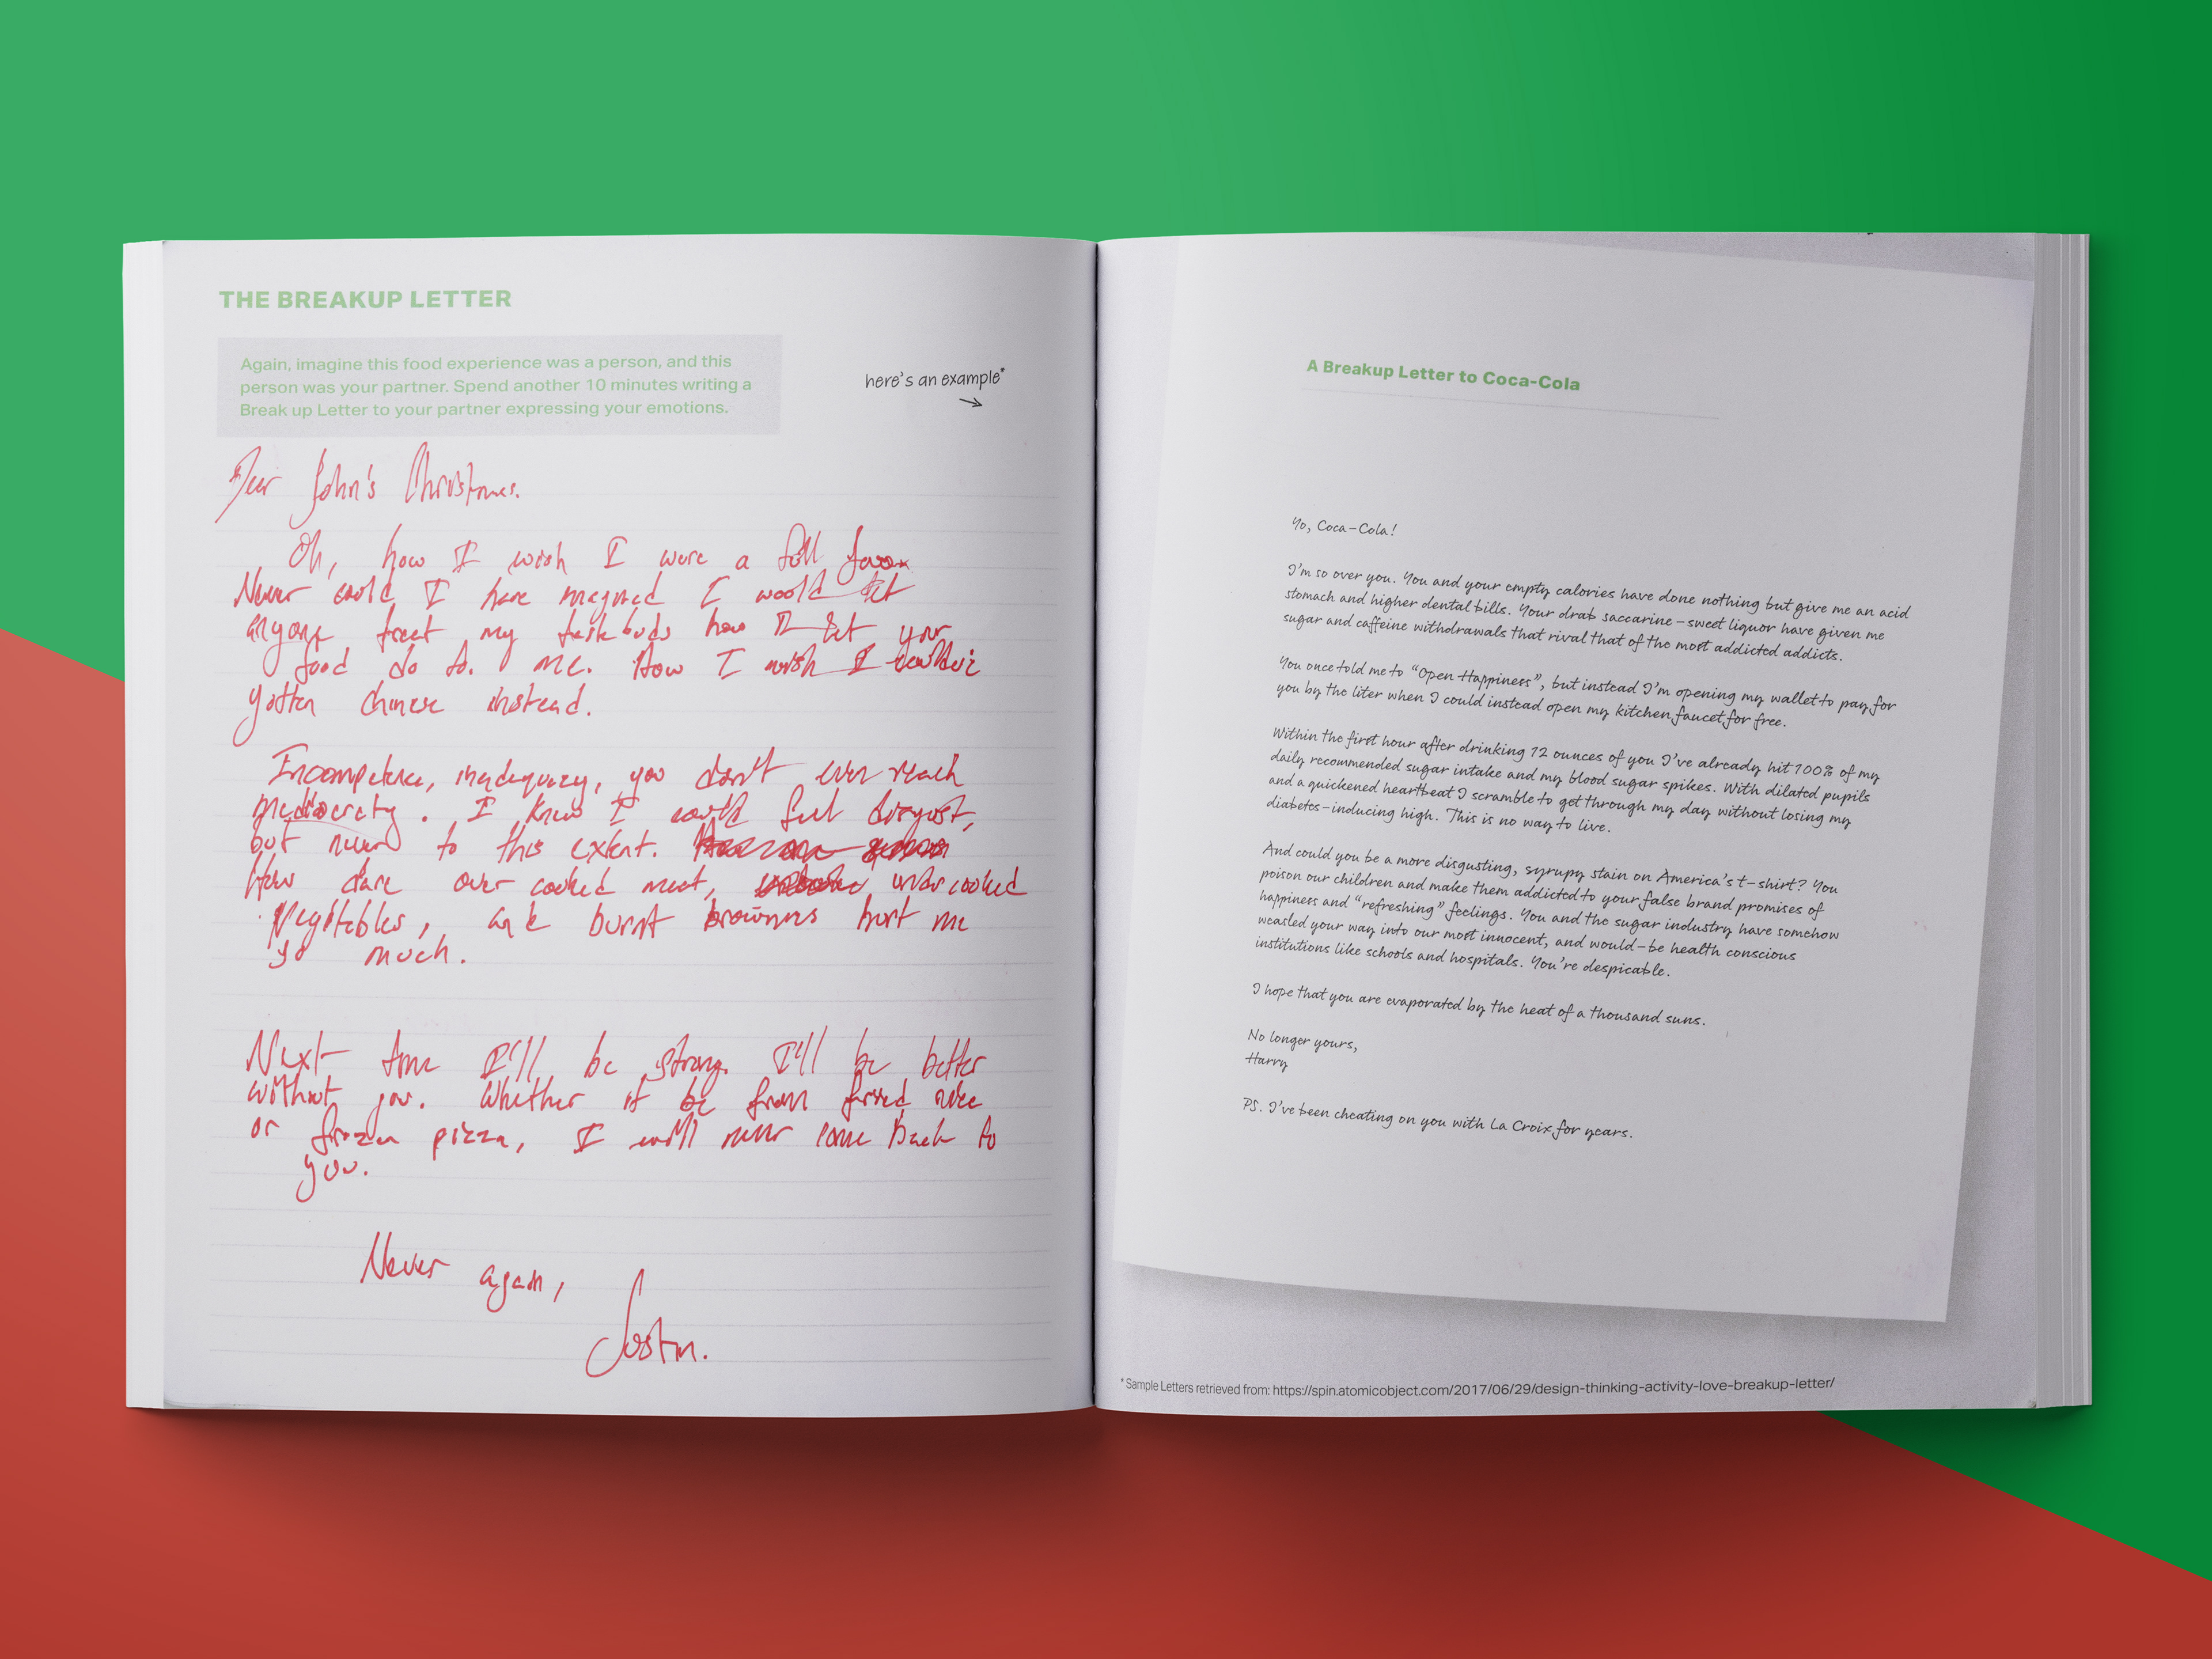 THE BREAKUP LETTER
Again, imagine this food experience was a person, and this
person was your partner. Spend another 10 minutes writing a
Break up Letter to your partner expressing your emotions.
here's an example*
Dear John's Christmas.
Oh, how I wish I were a full
Never could I have imagined I would let
anyone treat my tastebuds how I let your
food do to me. How I wish I
gotten chinese instead.
Incompetence, inadequacy, you don't even reach
mediocrety. I knew I could feel disgust,
but never to this extent.
How dare over cooked meat, undercooked
Vegetables, and burnt brownies hurt me
so much.
Next time I'll be strong. I'll be better
without you. Whether it be from fried rice
or frozen pizza, I will never come back to
you.
Never again,
Justin.
A Breakup Letter to Coca-Cola
Yo, Coca-Cola!
I'm so over you. You and your empty calories have done nothing but give me an acid
stomach and higher dental bills. Your drab saccarine-sweet liquor have given me
sugar and caffeine withdrawals that rival that of the most addicted addicts.
You once told me to "Open Happiness", but instead I'm opening my wallet to pay for
you by the liter when I could instead open my kitchen faucet for free.
Within the first hour after drinking 12 ounces of you I've already hit 100% of my
daily recommended sugar intake and my blood sugar spikes. With dilated pupils
and a quickened heartbeat I scramble to get through my day without losing my
diabetes-inducing high. This is no way to live.
And could you be a more disgusting, syrupy stain on America's t-shirt? You
poison our children and make them addicted to your false brand promises of
happiness and "refreshing" feelings. You and the sugar industry have somehow
weasled your way into our most innocent, and would-be health conscious
institutions like schools and hospitals. You're despicable.
I hope that you are evaporated by the heat of a thousand suns.
No longer yours,
Harry
PS. I've been cheating on you with La Croix for years.
* Sample Letters retrieved from: https://spin.atomicobject.com/2017/06/29/design-thinking-activity-love-breakup-letter/